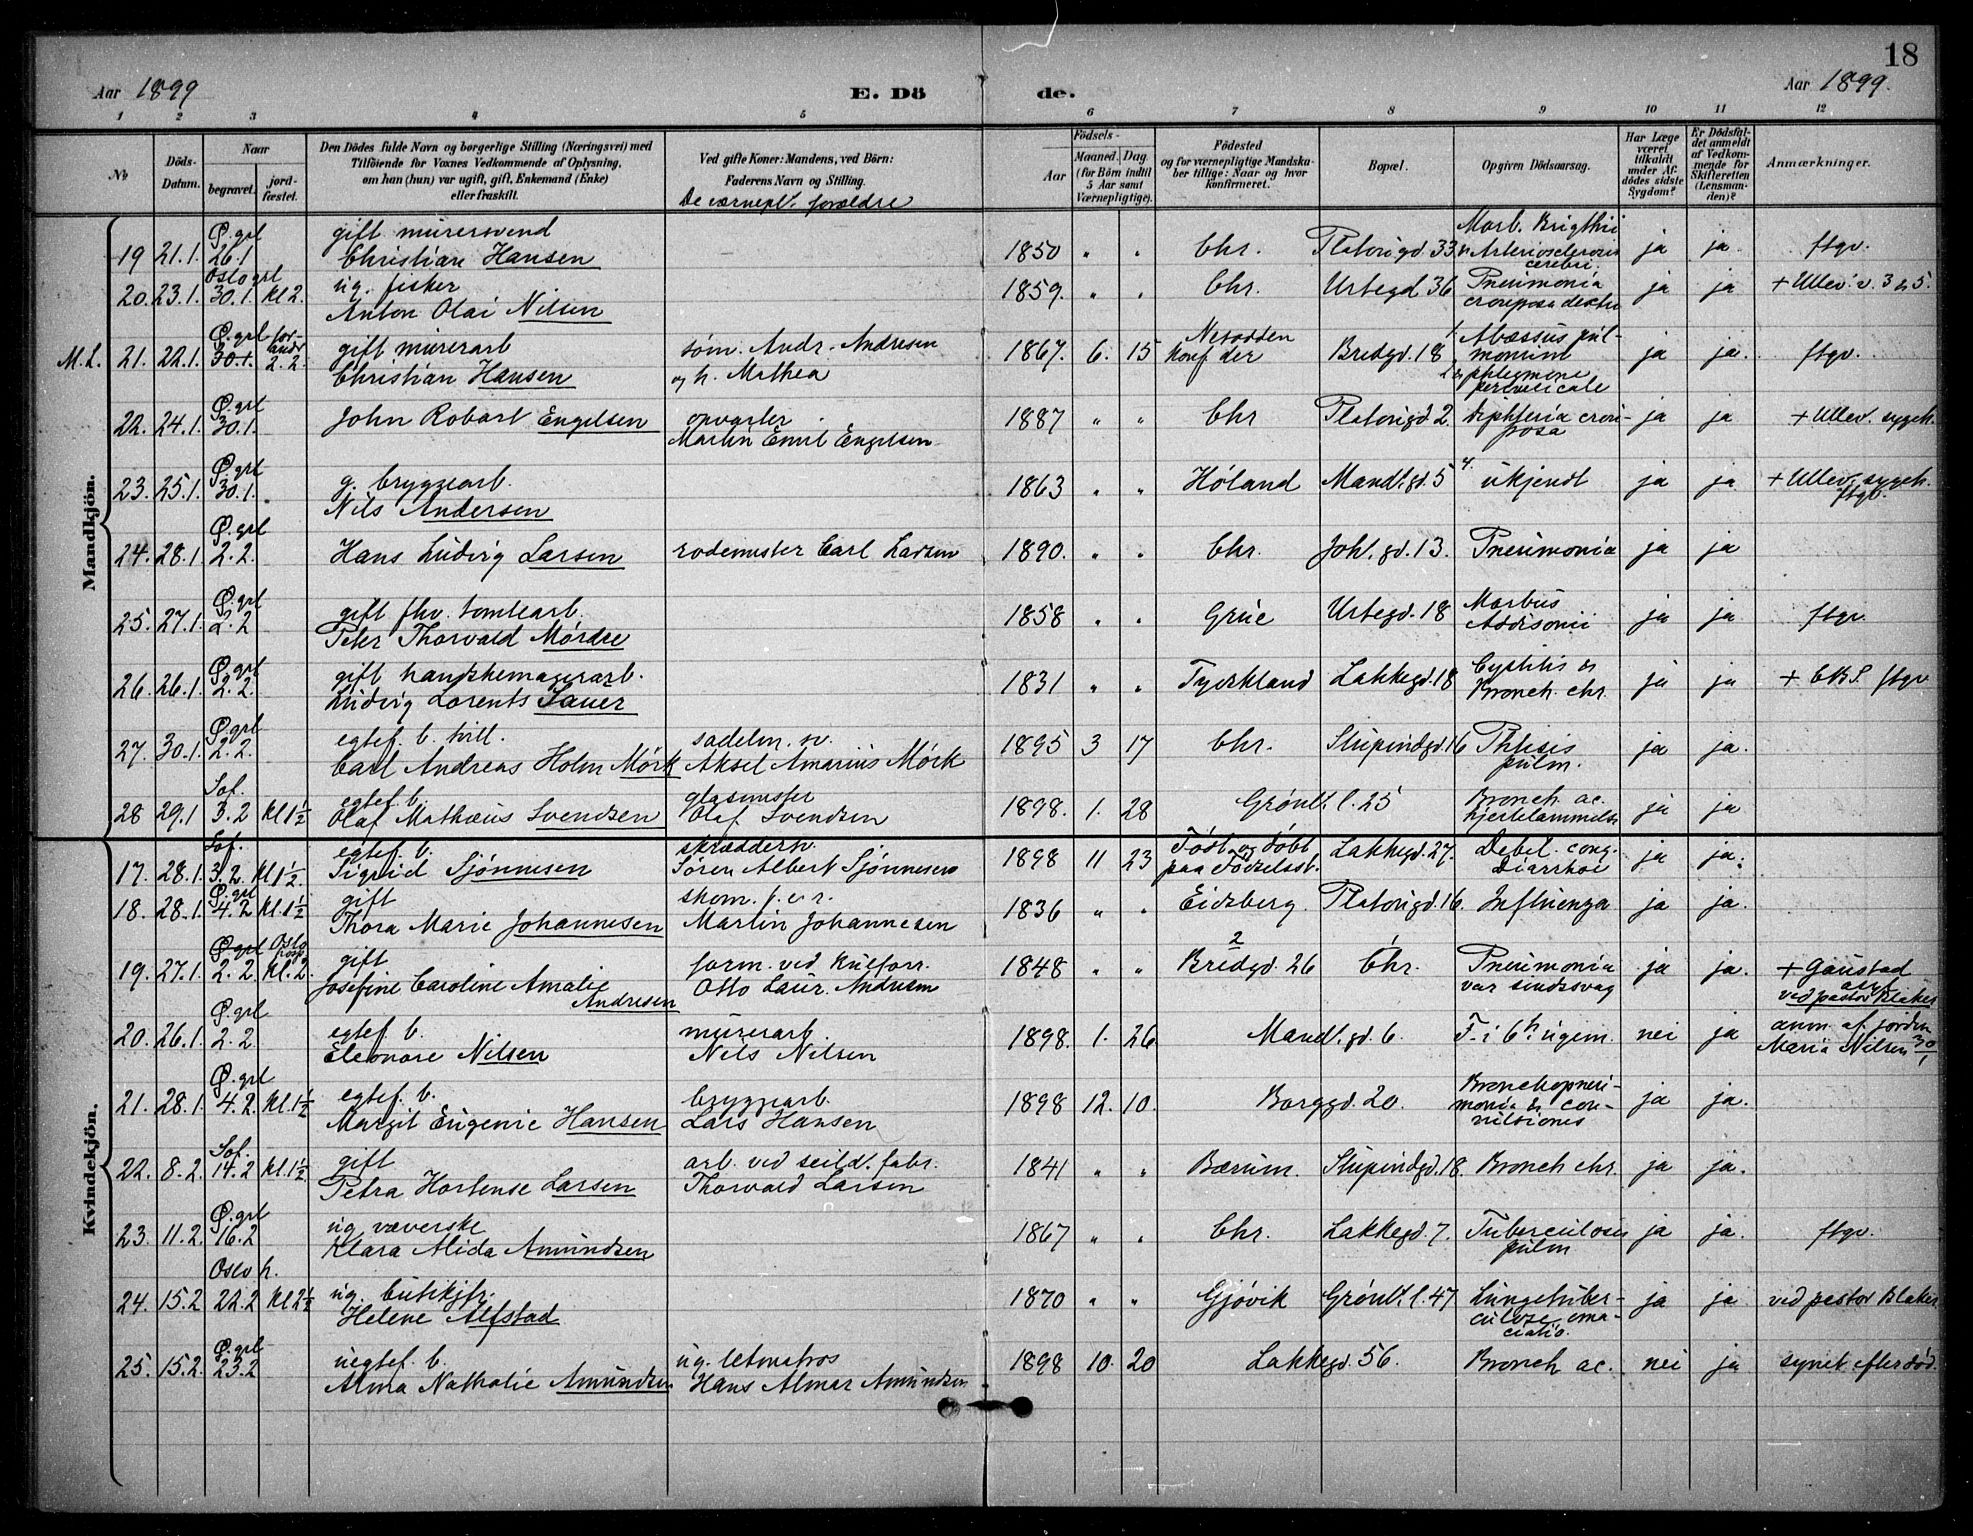 18
Aar 1899 E. Dö de. Aar 1899.
1 2 3 4 5 6 7 8 9 10 11 12
No
Döds-Datum.
Naar
begravet.
jordfæstet.
Den Dödes fulde Navn og borgerlige Stilling (Næringsvei) med
Tilföiende for Voxnes Vedkommende af Oplysning,
om han (hun) var ugift, gift, Enkemand (Enke)
eller fraskilt.
Ved gifte Koner: Mandens, ved Börn:
Faderens Navn og Stilling.
De værnepl. forældre
Födsels-
Aar
Maaned. Dag
(for Börn indtil
5 Aar samt
Værnepligtige).
Födested
og for værnepligtige Mandskaber tillige: Naar og hvor
konfirmeret.
Bopæl.
Opgiven Dödsaarsag.
Har Læge
været
tilkaldt
under Afdödes sidste
Sygdom?
Er Dödsfaldet anmeldt
af Vedkommende for
Skifteretten
(Lensmanden)?
Anmærkninger.
Mandkjön.
19 21.1. Ø.grl 26.1 gift murersvend Christian Hansen 1850 " " Chr. Platousgd. 33 Morb. Brigthii & Arteriosclerosis cerebri. ja ja. ftgv.
20. 23.1. Oslo grl 30.1. kl 2. ug. fisker Anton Olai Nilsen 1859. " " Chr. Urtegd 36 Pneumonia crouposa dextra ja ja + Ullev. v. 3 & 5.
M.L. 21. 22.1. Ø.grl 30.1. 2.2. gift murerarb Christian Hansen søm. Andr. Andresen og h. Mathea 1867. 6. 15 Nesodden Konf der Bredgd. 18 1. Abscessus pulmonum 2. phlegmone perivesicale ja ja. ftgv.
22. 24.1. Ø.grl 30.1. John Robart Engelsen opvarter Martin Emil Engelsen 1887 " " Chr Platousgd 2. Diphteria crouposa ja ja + Ullev. sygeh.
23. 25.1. Ø.grl 30.1. g. bryggearb. Nils Andersen 1863 " " Høland Mandl.gd. 5 ukjendt ja ja + Ullev. sygeh. ftgv.
24. 28.1. Ø.grl 2.2. Hans Ludvig Larsen rodemester Carl Larsen 1890. " " Chr. Joh.gd. 13. Pneumonia ja ja
25. 27.1. Ø.grl 2.2 gift fhv. tomtearb. Peter Thorvald Mørdre 1858 " " Grue Urtegd. 18 Morbus Addisonii ja ja ftgv.
26. 26.1. Ø.grl 2.2. gift handskemagerarb. Ludvig Lorents Sauer 1831 " " Tyskland Lakkegd. 18 Cystitis & Bronch. chr. ja ja + CBS. ftgv
27. 30.1. Ø.grl 2.2. egtef. b. tvill. Carl Andreas Holm Mørk sadelm. sv. Aksel Amarius Mørk 1895 3 17 Chr. Stupindgd. 16 Phtisis pulm. ja ja.
28 29.1 Sof. 3.2 kl 1½ egtef. b. Olaf Mathæus Svendsen glasmester Olaf Svendsen 1898. 1. 28 Grønl. l. 25 Bronch ac. hjertelammelse ja ja
Kvindekjön.
17. 28.1. Sof. 3.2. kl 1½. egtef. b. Sigrid Sjønnesen skræddersv. Søren Albert Sjønnesen 1898 11 23 Født og døbt paa Fødselsst. Lakkegd. 27. Debil. cong. Diarrhoe ja ja.
18. 28.1. Ø.grl 4.2 kl. 1½ gift Thora Marie Johannesen skom. Martin Johannesen 1836 " " Eidsberg Platousgd. 16. Influenza ja ja.
19. 27.1. Ø.grl 2.2. Oslo hosp kl. 2. gift Josefine Caroline Amalie Andresen form. ved kulforr. Otto Laur. Andresen 1848 " " 2 Bredgd. 26 1 Chr. Pneumonia var sindssvag ja ja. + Gaustad asyl ved pastor Blakes
20. 26.1. Ø.grl 2.2. egtef. b. Eleonore Nilsen murerarb. Nils Nilsen 1898. 1. 26 Mandl.gd. 6. F. i 6. ugem. nei ja anm. af jordm. Maria Nilsen 30/1
21. 28.1. Ø.grl 4.2. kl. 1½ egtef. b. Margit Eugenie Hansen bryggearb. Lars Hansen 1898 12. 10. Borggd. 20. Bronchopneumonia & convulsiones ja ja.
22. 8.2. Sof. 14.2 kl. 1½ gift Petra Hortense Larsen arb. ved seild. fabr. Thorvald Larsen 1841 " " Bærum Stupindgd. 18. Bronch chr. ja ja.
23. 11.2. Ø.grl 16.2 ug. væverske Klara Alida Amundsen 1867 " " Chr. Lakkegd. 7. Tuberculosis pulm ja ja. ftgv.
24. 15.2 Oslo h. 22.2 kl 2½ ug. butikjfr. Helene Alfstad 1870 " " Gjøvik Grønl. l. 47 Lungetuberculose emaciatio. ja ja. ved pastor Blakes
25. 15.2. Ø.grl 23.2 uegtef. b. Alma Nathalie Amundsen ug. letmatros Hans Almar Amundsen 1898 10. 20 Lakkegd. 56. Bronch ac. nei ja synet efter død.